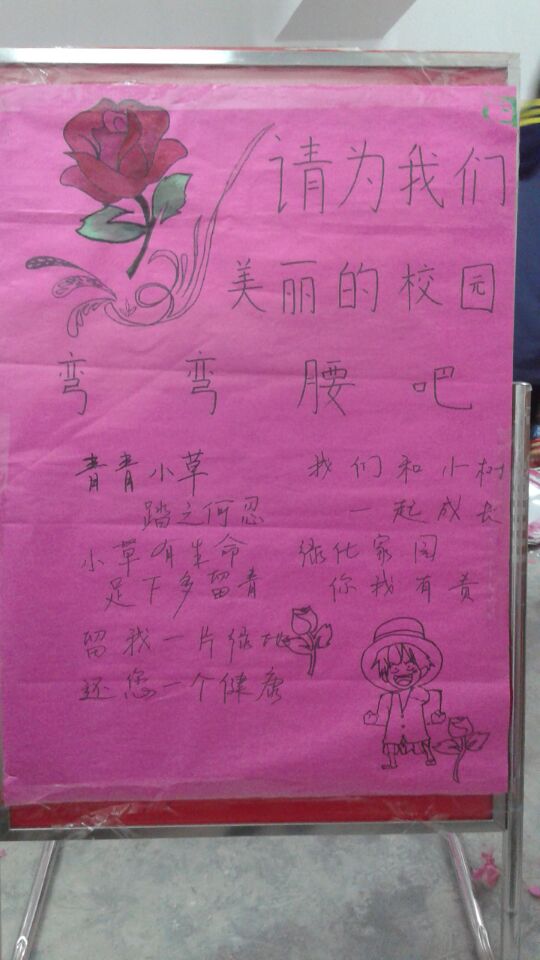 请为我们
美丽的校园
弯弯腰吧
青青小草
踏之何忍
小草有生命
足下多留青
留我一片绿地
还您一个健康
我们和小树
一起成长
绿化家园
你我有责